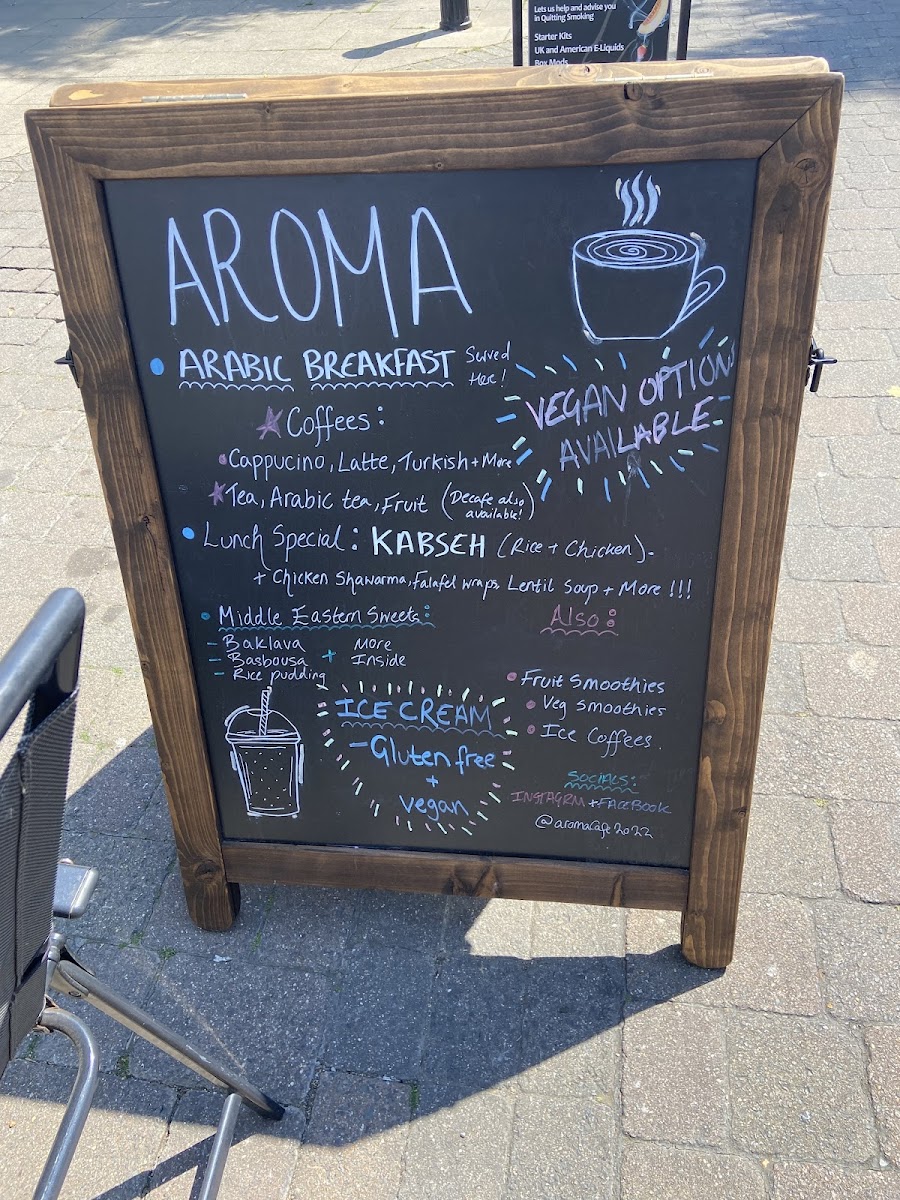 Lets us help and advise you
in Quitting Smoking
Starter Kits
UK and American E-Liquids
Box Mods
AROMA
• ARABIC BREAKFAST Served Here!
VEGAN OPTION
AVAILABLE
Coffees:
• Cappucino, Latte, Turkish + More
Tea, Arabic tea, Fruit (Decafe also available!)
• Lunch Special: KABSEH (Rice + Chicken).
+ Chicken Shawarma, Falafel wraps, Lentil Soup + More !!!
• Middle Eastern Sweets:
- Baklava
- Basbousa
- Rice pudding
+ More
Inside
Also:
• Fruit Smoothies
• Veg Smoothies
• Ice Coffees.
ICE CREAM
- Gluten free
+
vegan
SOCIALS:
INSTAGRM + FACEBOOK
@aromacafe2022